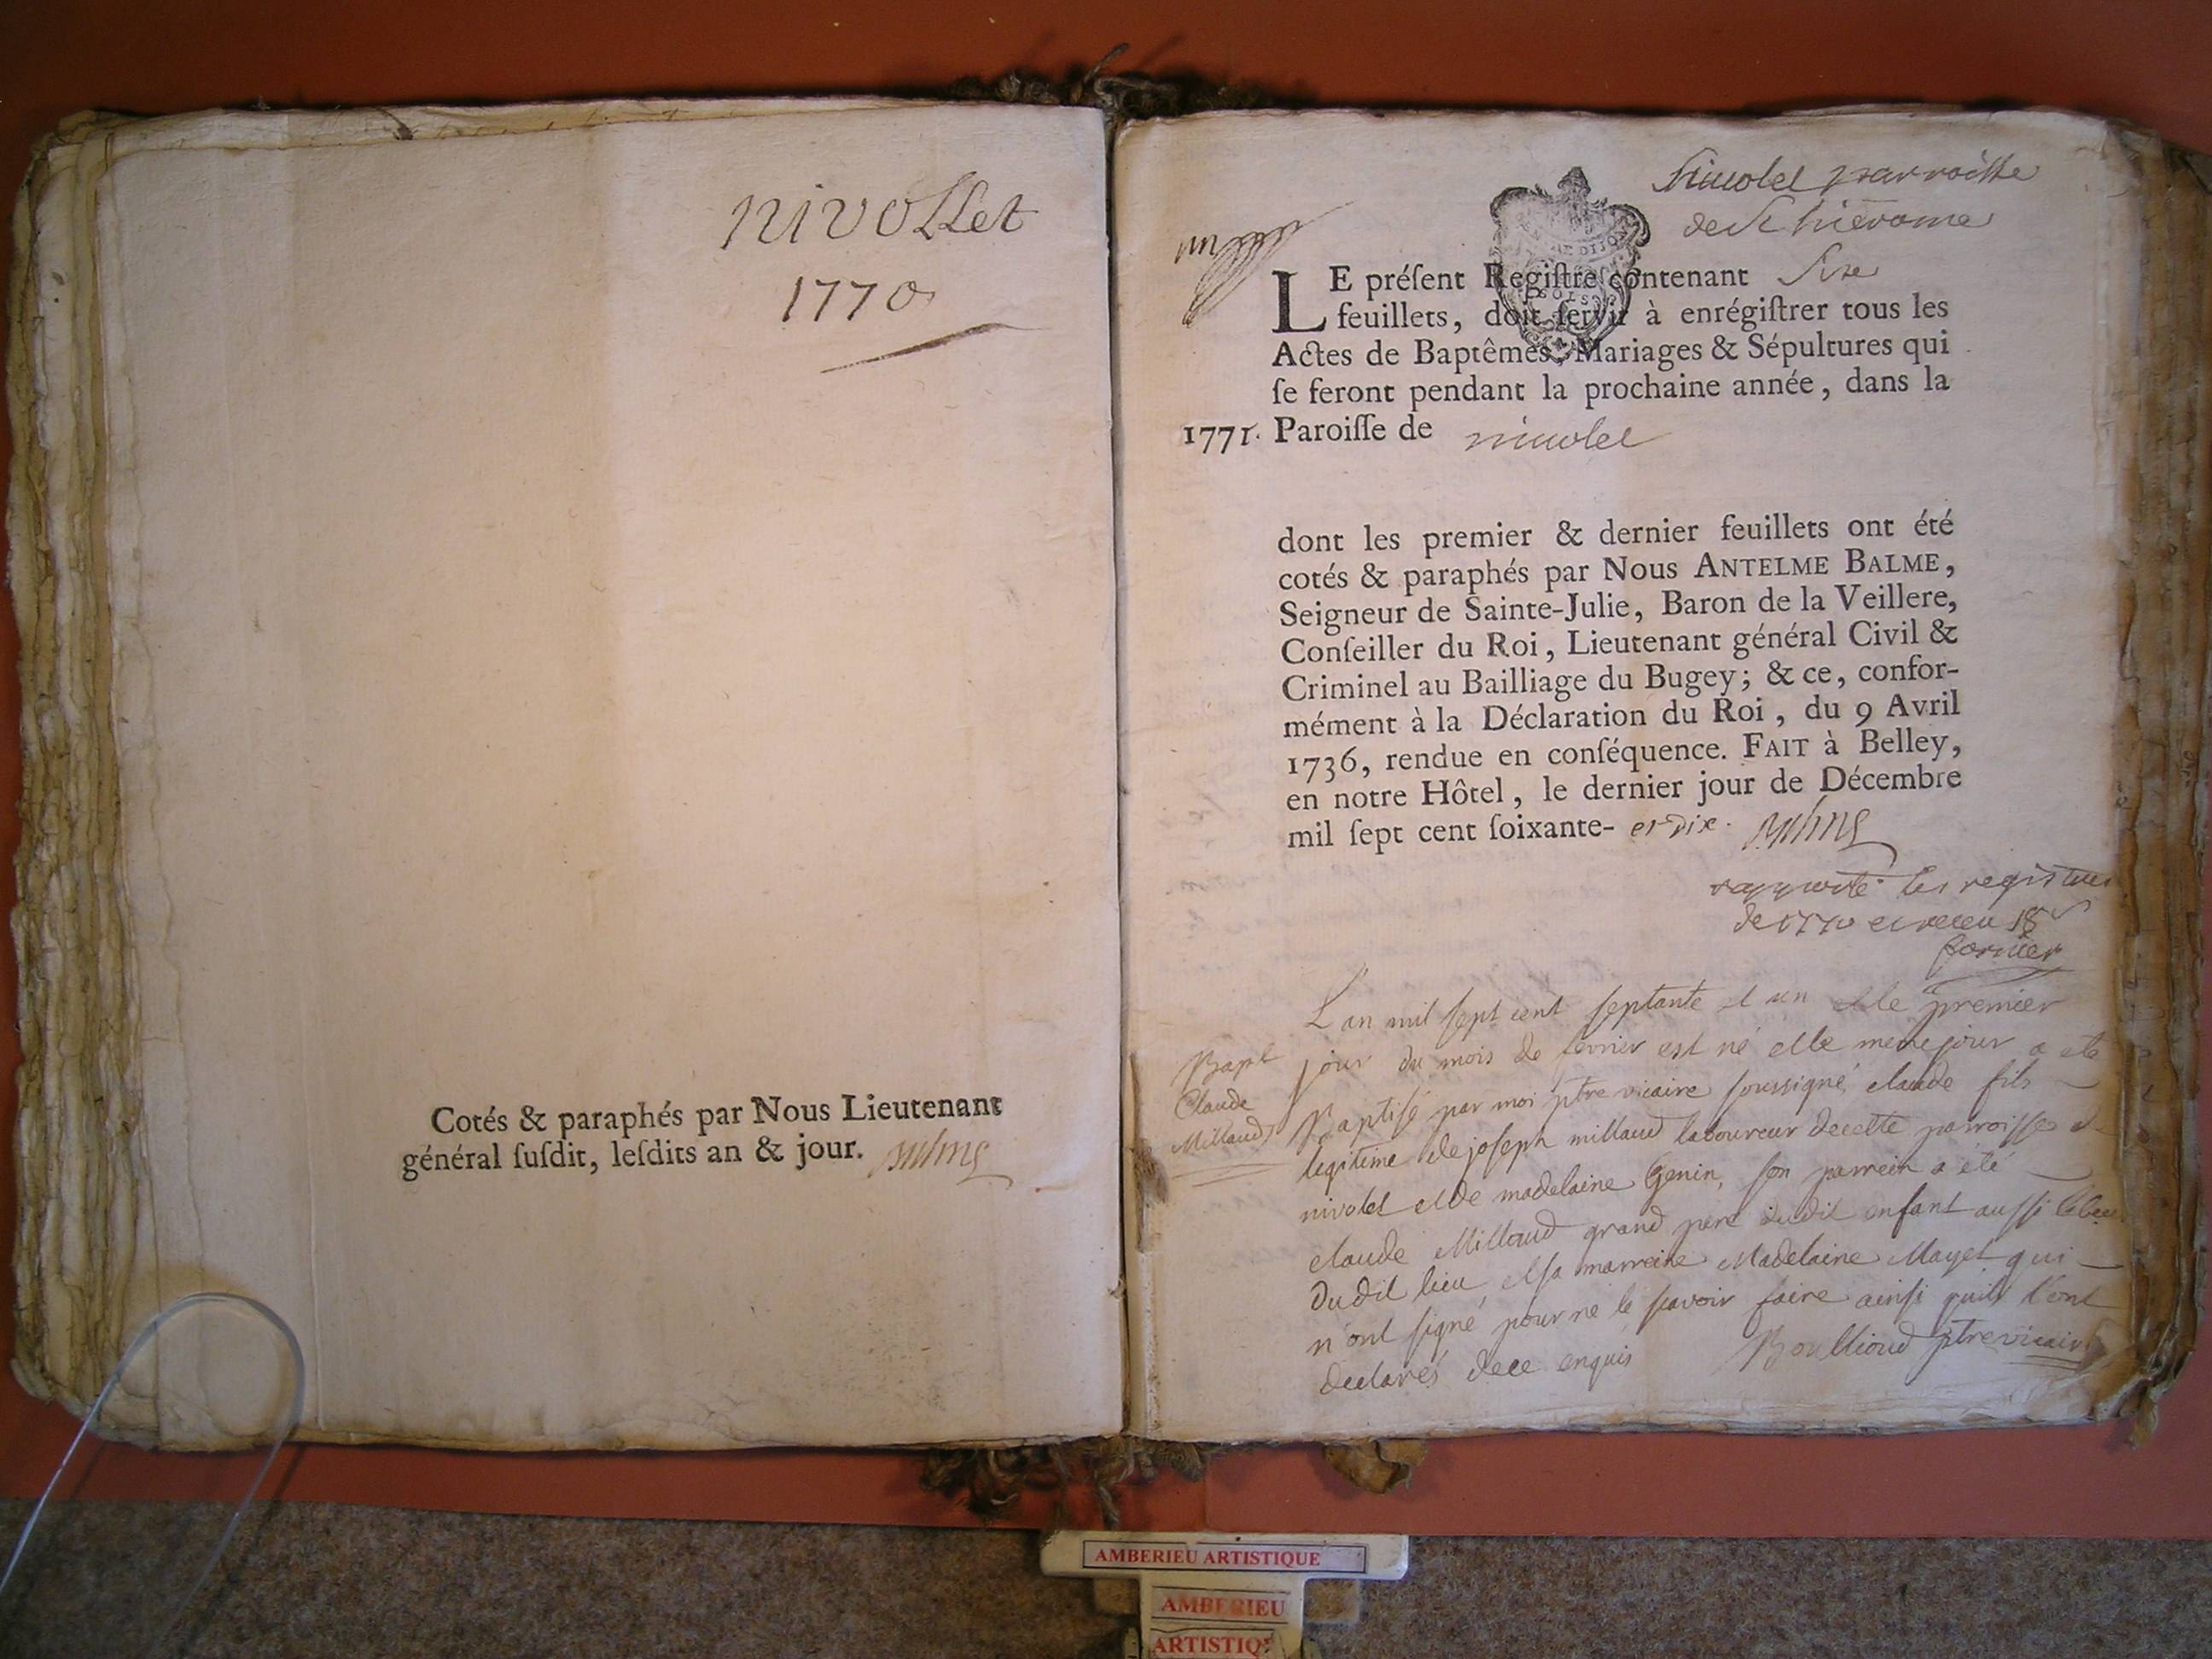 nivollet
1770
Cotés & paraphés par Nous Lieutenant
général ſuſdit, leſdits an & jour. Balme
Nivolet parroisse
de St hierome
un
LE préſent Regiſtre contenant Six
feuillets, doit ſervir à enrégiſtrer tous les
Actes de Baptêmes, Mariages & Sépultures qui
ſe feront pendant la prochaine année, dans la
1771. Paroiſſe de nivolet
dont les premier & dernier feuillets ont été
cotés & paraphés par Nous ANTELME BALME,
Seigneur de Sainte-Julie, Baron de la Veillere,
Conſeiller du Roi, Lieutenant général Civil &
Criminel au Bailliage du Bugey; & ce, confor-
mément à la Déclaration du Roi, du 9 Avril
1736, rendue en conſéquence. FAIT à Belley,
en notre Hôtel, le dernier jour de Décembre
mil ſept cent ſoixante- et dix. Balme
rapporté les registres
de 1770 et receu 18
L'an mil sept cent septante et un et le premier
Bapt
Claude
Millaud
jour du mois de fevrier est né et le meme jour a ete
Baptisé par moi ptre vicaire soussigné claude fils
legitime de joseph millaud laboureur de cette parroisse de
nivolet et de madelaine Genin, son parrein a été
claude Millaud grand pere dudit enfant aussi labour
dudit lieu et sa marreine Madelaine Mayet qui
n'ont signé pour ne le scavoir faire ainsi quils l'ont
declarés de ce enquis Boullioud ptre vicaire
AMBERIEU ARTISTIQUE
AMBERIEU
ARTISTIQ